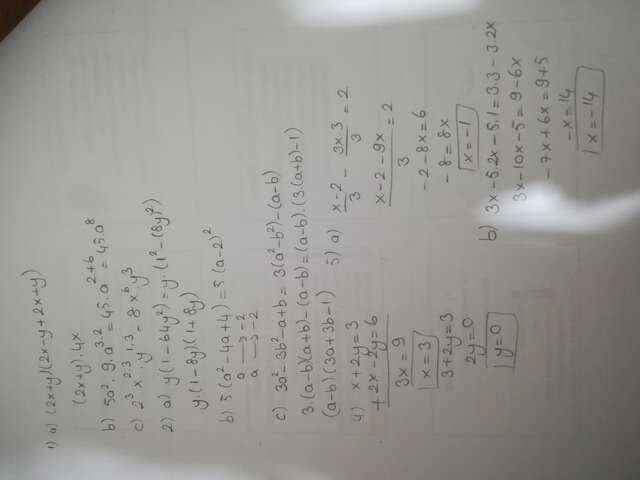 1) a) (2x+y)(2x-y+2x+y)
(2x+y).4x
b) 5a².9.a^3.2 = 45.a^2+6 = 45.a⁸
c) 2³x^2.3.y^1.3 = 8x⁶y³
2) a) y(1-64y²) = y.(1²-(8y)²)
y.(1-8y)(1+8y)
b) 5(a²-4a+4) = 5(a-2)²
a → -2
a → -2
c) 3a²-3b²-a+b = 3(a²-b²)-(a-b)
3.(a-b)(a+b)-(a-b) = (a-b).(3.(a+b)-1)
(a-b)(3a+3b-1)
4) x+2y=3
+ 2x-2y=6
3x=9
x=3
3+2y=3
2y=0
y=0
5) a) x-2/3 - 3x3/3 = 2
x-2-9x/3 = 2
-2-8x=6
-8=8x
x=-1
b) 3x-5.2x-5.1=3.3-3.2x
3x-10x-5=9-6x
-7x+6x=9+5
-x=14
x=-14